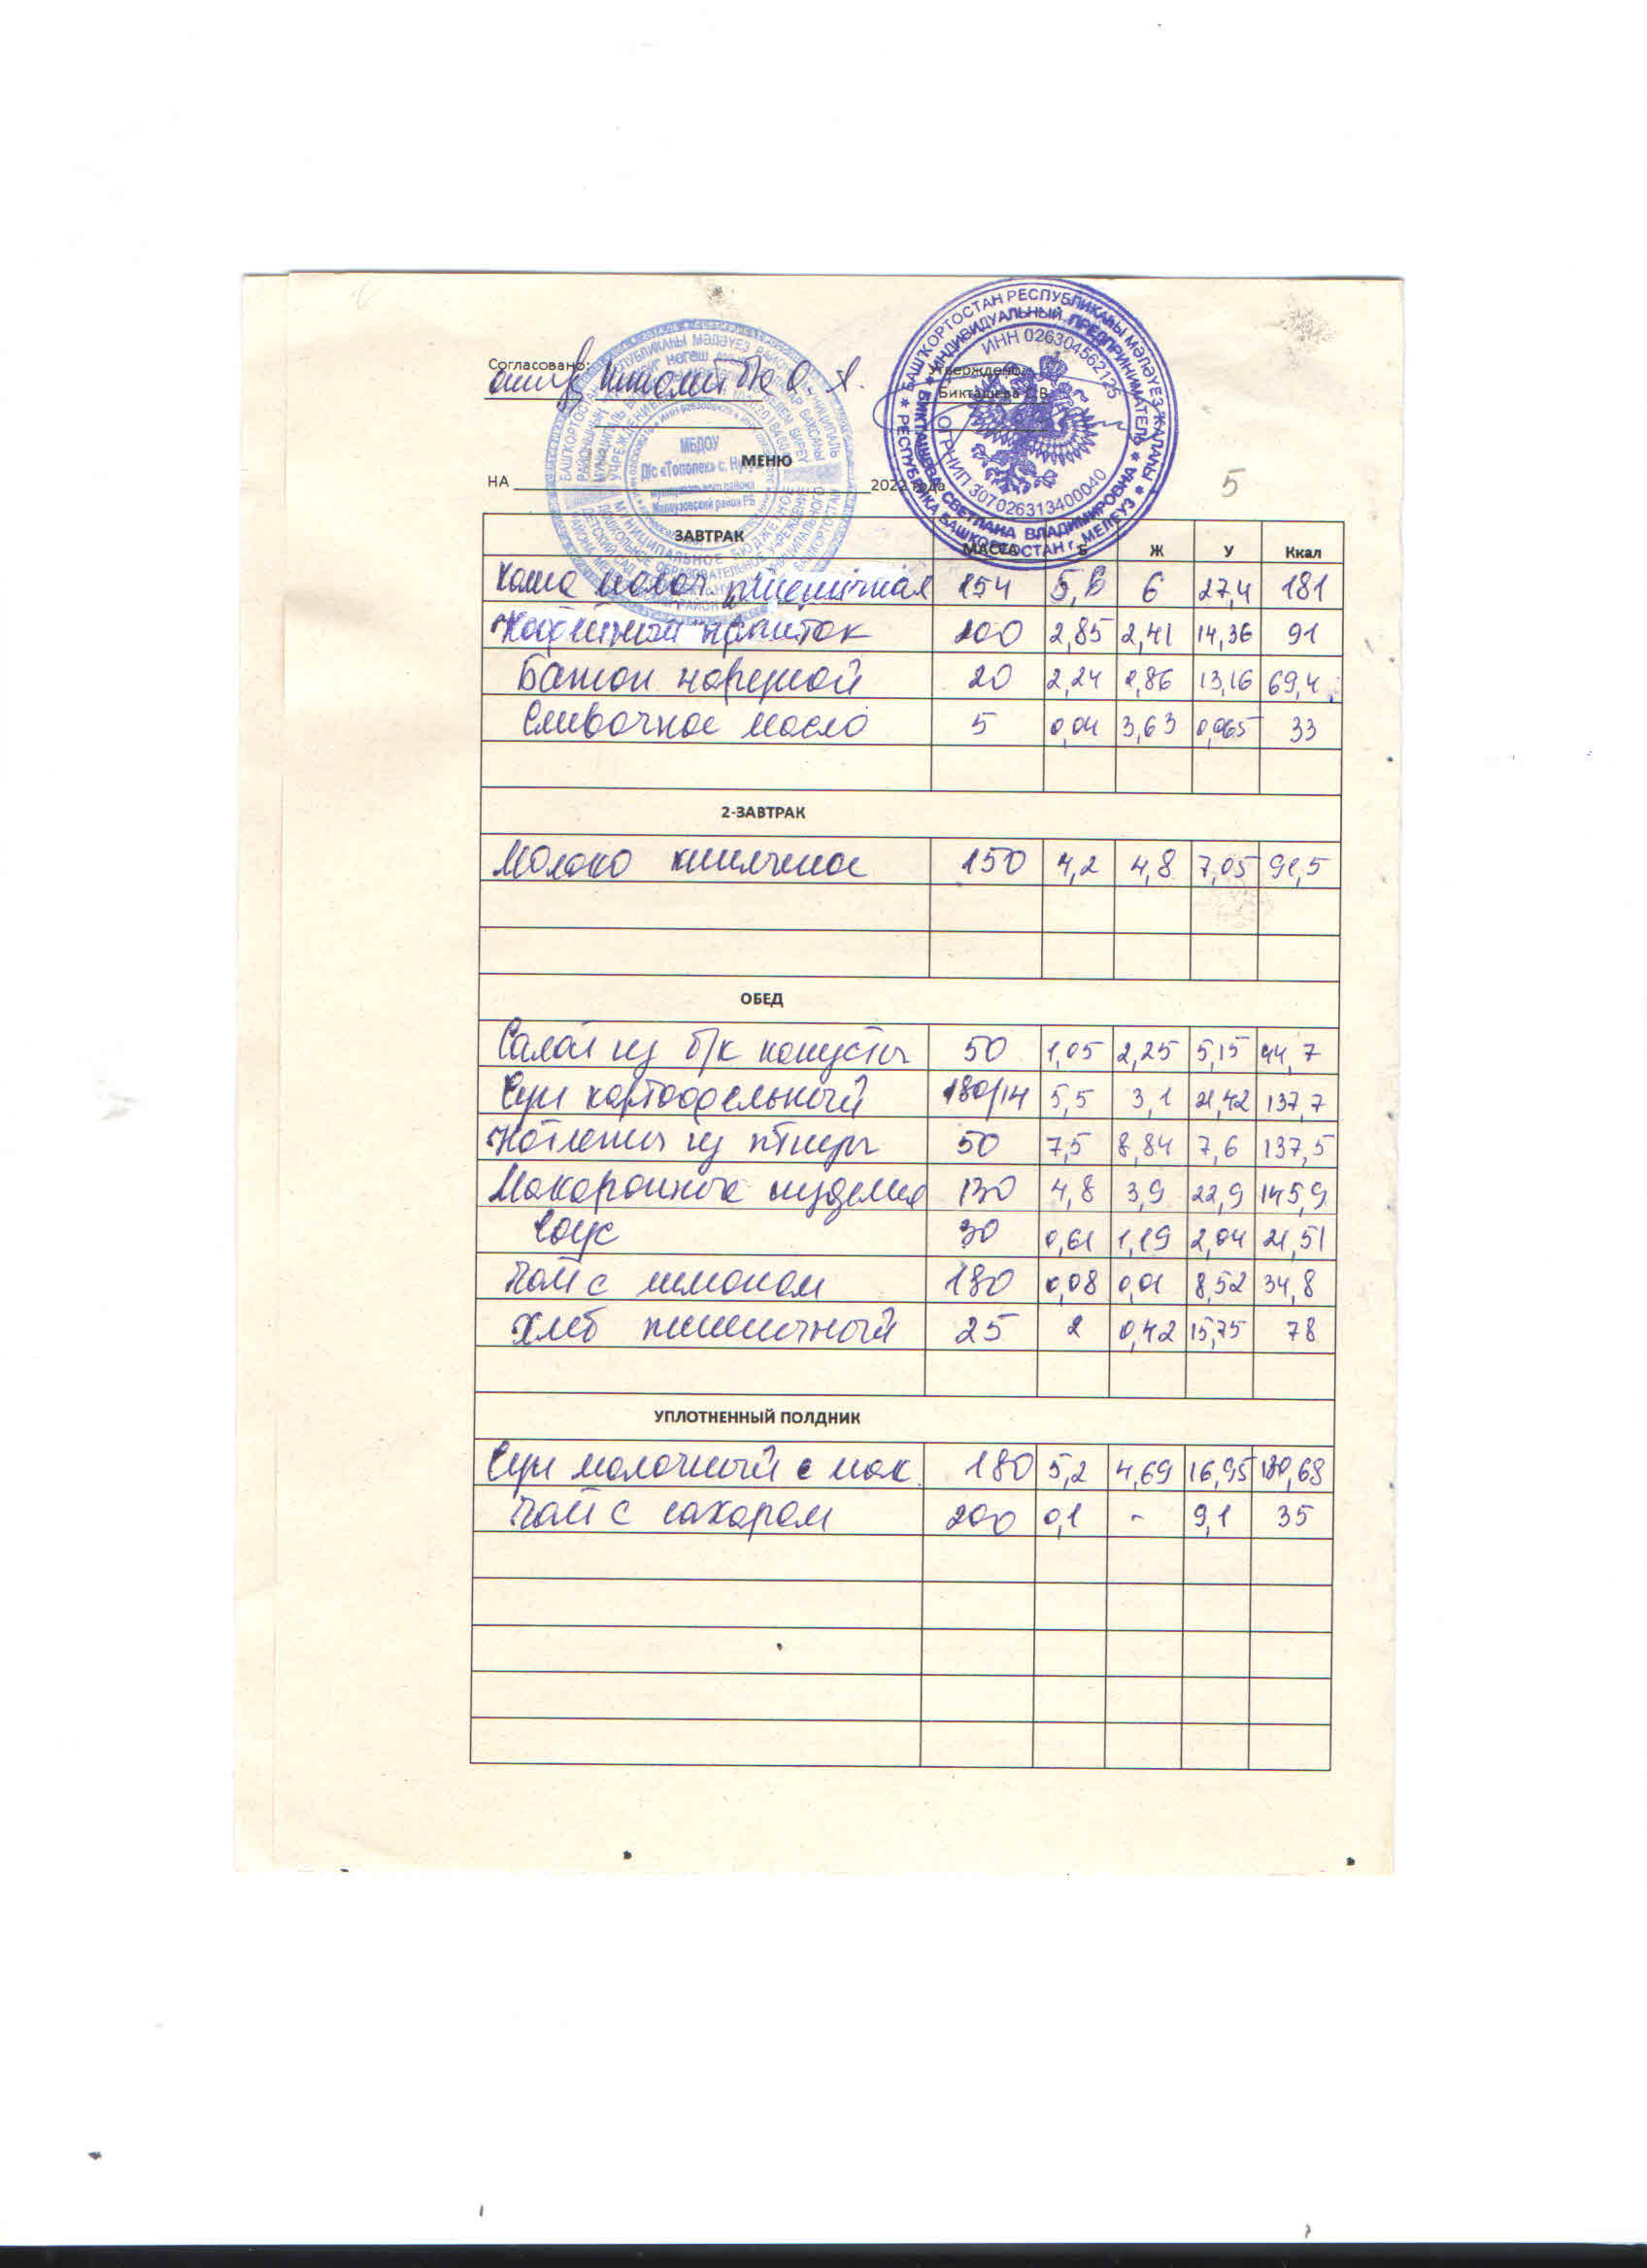 Согласовано:
Утверждено:
Бикташева С.В.
БАШҠОРТОСТАН РЕСПУБЛИКАҺЫ МӘЛӘҮЕЗ ҠАЛАҺЫ
РЕСПУБЛИКА БАШКОРТОСТАН г. МЕЛЕУЗ
ИНДИВИДУАЛЬНЫЙ ПРЕДПРИНИМАТЕЛЬ
БИКТАШЕВА СВЕТЛАНА ВЛАДИМИРОВНА
ИНН 026304562125
ОГРНИП 307026313400040
МБДОУ
Д/с «Тополек» с.
муниципального района
Мелеузовский район РБ
МЕНЮ
НА 2022 года
5
ЗАВТРАК МАССА Б Ж У Ккал
Каша молоч. пшеничная 154 5,6 6 27,4 181
Кофейный напиток 200 2,85 2,41 14,36 91
Батон нарезной 20 2,24 2,86 13,16 69,4
Сливочное масло 5 0,04 3,63 0,065 33
2-ЗАВТРАК
Молоко кипяченое 150 4,2 4,8 7,05 91,5
ОБЕД
Салат из б/к капусты 50 1,05 2,25 5,15 44,7
Суп картофельный 180/14 5,5 3,1 21,42 137,7
Котлеты из птицы 50 7,5 8,84 7,6 137,5
Макаронные изделия 130 4,8 3,9 22,9 145,9
Соус 30 0,61 1,19 2,04 21,51
Чай с лимоном 180 0,08 0,01 8,52 34,8
Хлеб пшеничный 25 2 0,42 15,75 78
УПЛОТНЕННЫЙ ПОЛДНИК
Суп молочный с мак. 180 5,2 4,69 16,95 130,68
Чай с сахаром 200 0,1 - 9,1 35